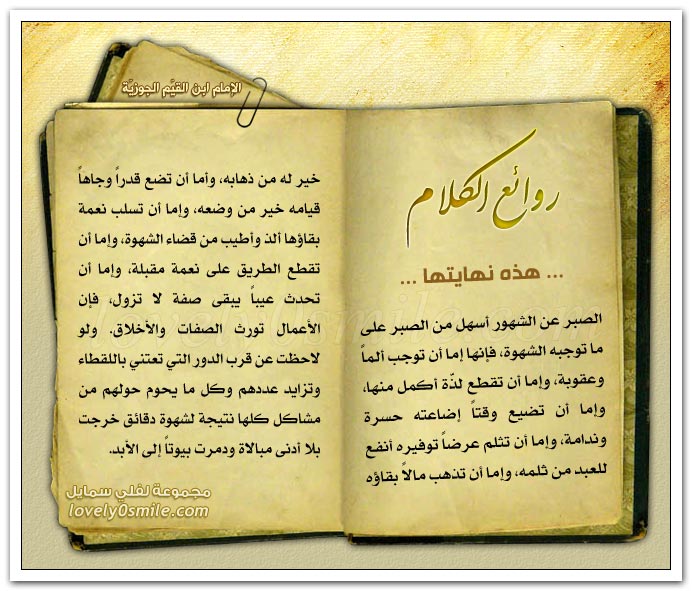 الإمام ابن القيّم الجوزيّة
روائع الكلام
... هذه نهايتها ...
الصبر عن الشهور أسهل من الصبر على
ما توجبه الشهوة، فإنها إما أن توجب ألماً
وعقوبة، وإما أن تقطع لذّة أكمل منها،
وإما أن تضيع وقتاً إضاعته حسرة
وندامة، وإما أن تثلم عرضاً توفيره أنفع
للعبد من ثلمه، وإما أن تذهب مالاً بقاؤه
خير له من ذهابه، وأما أن تضع قدراً وجاهاً
قيامه خير من وضعه، وإما أن تسلب نعمة
بقاؤها ألذ وأطيب من قضاء الشهوة، وإما أن
تقطع الطريق على نعمة مقبلة، وإما أن
تحدث عيباً يبقى صفة لا تزول، فإن
الأعمال تورث الصفات والأخلاق. ولو
لاحظت عن قرب الدور التي تعتني باللقطاء
وتزايد عددهم وكل ما يحوم حولهم من
مشاكل كلها نتيجة لشهوة دقائق خرجت
بلا أدنى مبالاة ودمرت بيوتاً إلى الأبد.
مجموعة لفلي سمايل
lovely0smile.com
lovely0smile.com